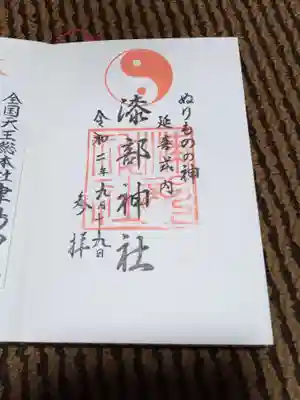 ぬりものの神
延喜式内
漆部神社
令和二年九月十九日
参拝
全国天王総本社
津島